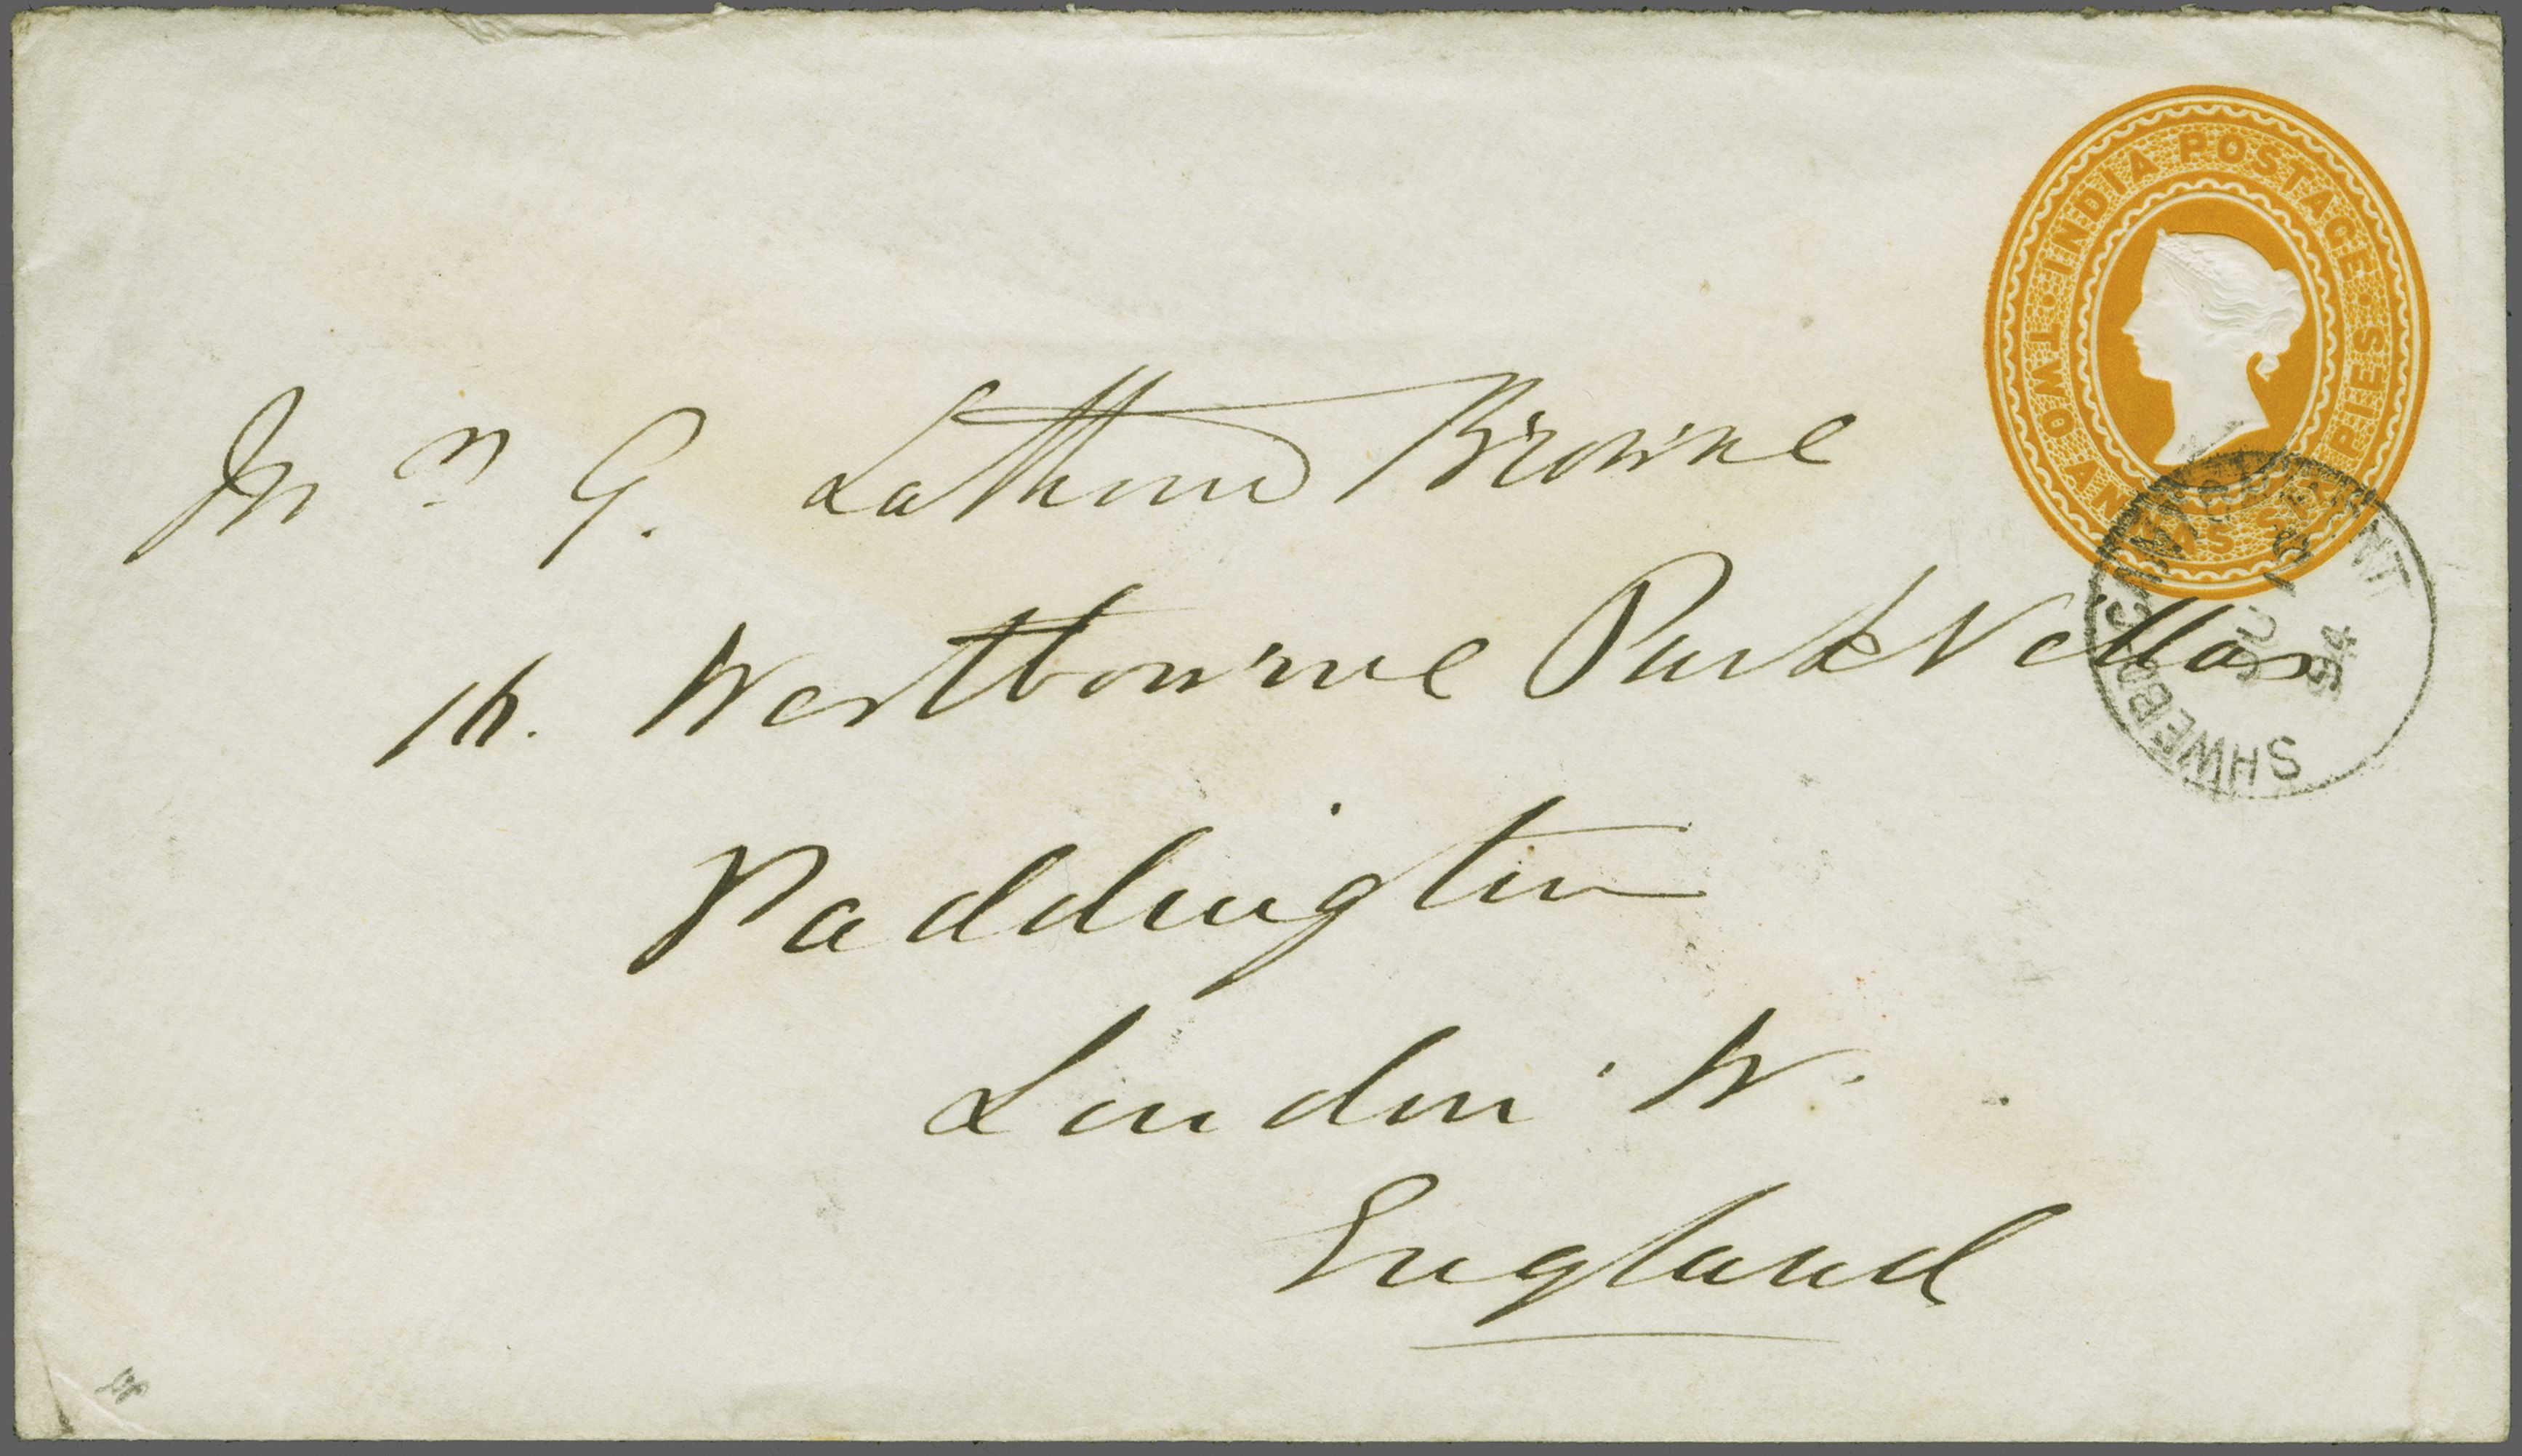 INDIA POSTAGE
TWO ANNAS SIX PIES
SHWEBO CANTONMENT
94
Mrs G. Lathom Browne
Westbourne Park Villas
Paddington
London W.
England